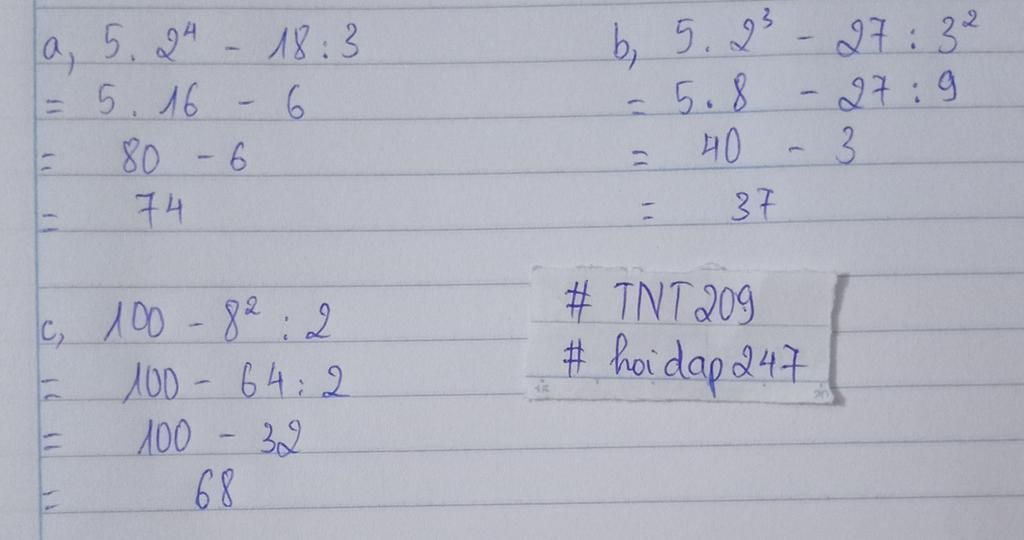 a, 5. 2⁴ - 18 : 3
= 5. 16 - 6
= 80 - 6
= 74
b, 5. 2³ - 27 : 3²
= 5. 8 - 27 : 9
= 40 - 3
= 37
c, 100 - 8² : 2
= 100 - 64 : 2
= 100 - 32
= 68
# TNT209
# hoidap247